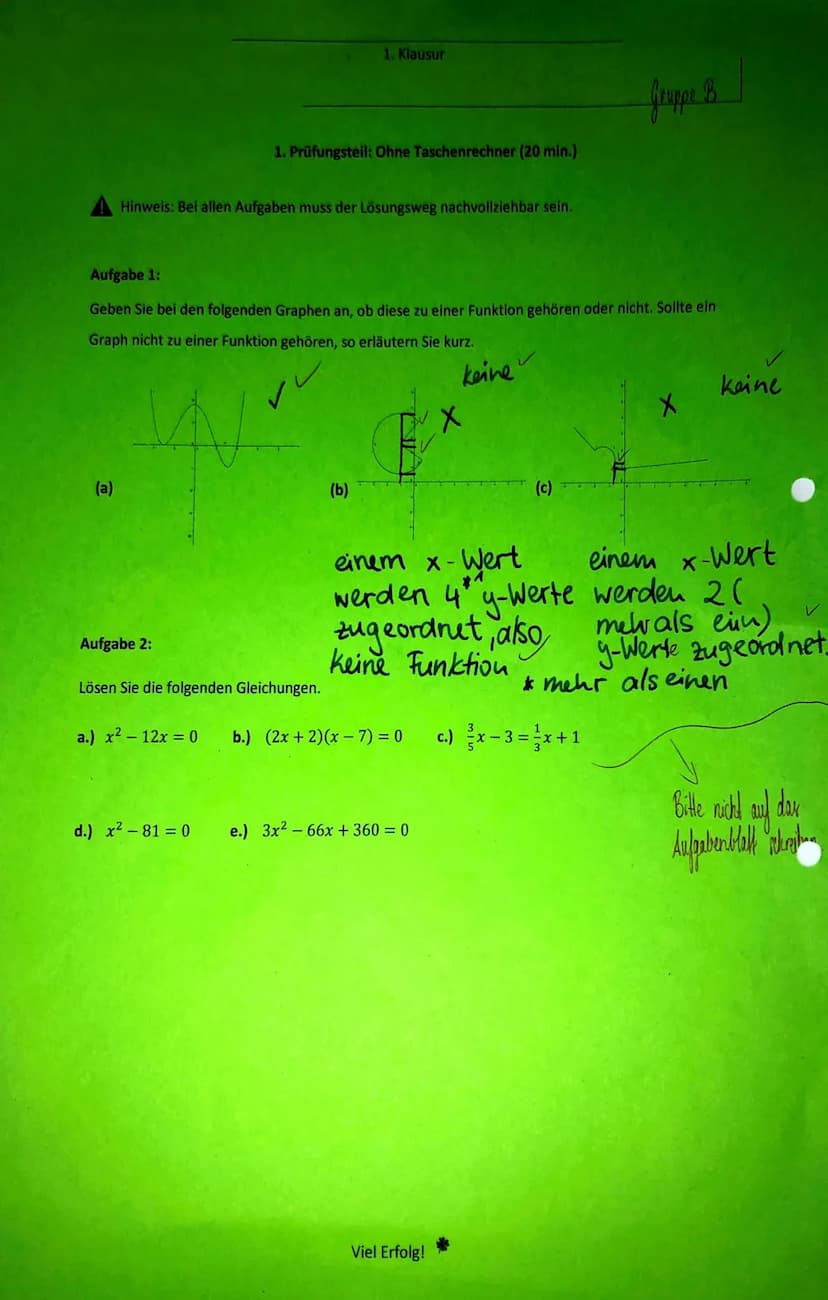 1. Klausur
Gruppe B
1. Prüfungsteil: Ohne Taschenrechner (20 min.)
Hinweis: Bei allen Aufgaben muss der Lösungsweg nachvollziehbar sein.
Aufgabe 1:
Geben Sie bei den folgenden Graphen an, ob diese zu einer Funktion gehören oder nicht. Sollte ein
Graph nicht zu einer Funktion gehören, so erläutern Sie kurz.
keine
keine
(a)
(b)
(c)
einem x-Wert
werden 4* y-Werte
zugeordnet, also
keine Funktion
* mehr als einen
einem x-Wert
werden 2 (
mehr als ein)
y-Werte zugeordnet.
Aufgabe 2:
Lösen Sie die folgenden Gleichungen.
a.) x² – 12x = 0 b.) (2x + 2)(x – 7) = 0 c.) 3/5 x – 3 = 1/3 x + 1
Bitte nicht auf das
Aufgabenblatt
d.) x² – 81 = 0 e.) 3x² – 66x + 360 = 0
Viel Erfolg!